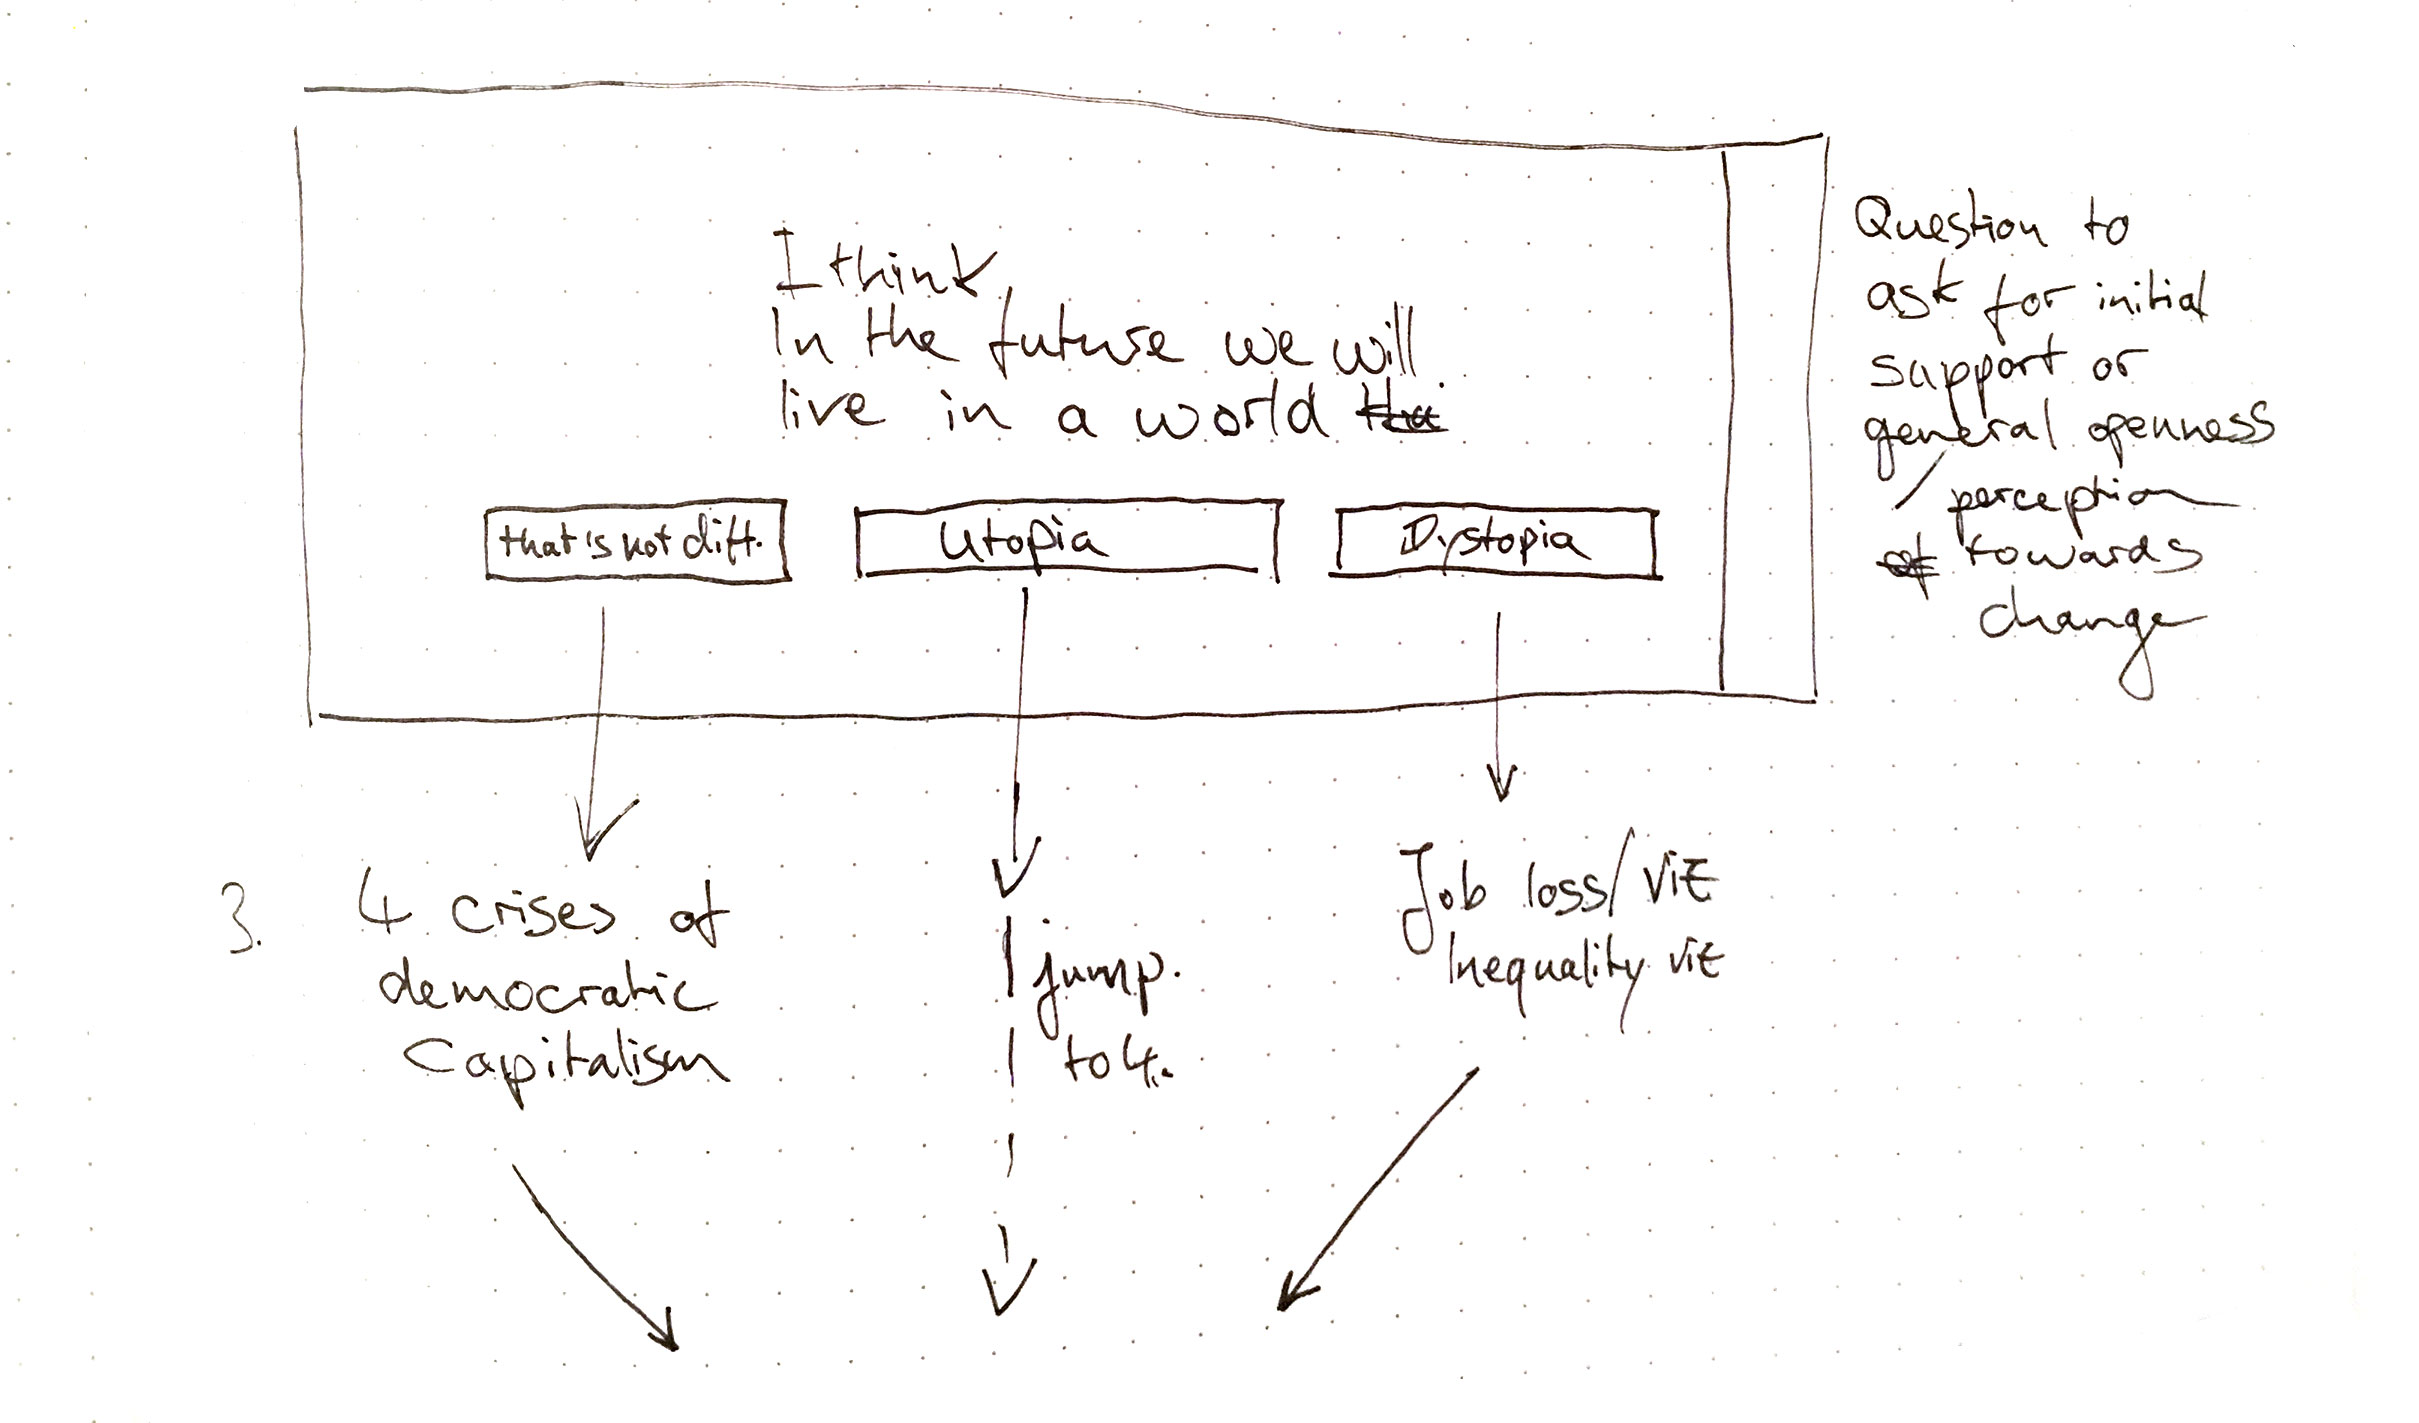 I think
In the future we will
live in a world
that's not diff.
Utopia
Dystopia
Question to
ask for initial
support or
general openness
/ perception
of towards
change
3.
4 crises of
democratic
Capitalism
jump.
to 4.
Job loss/
Inequality